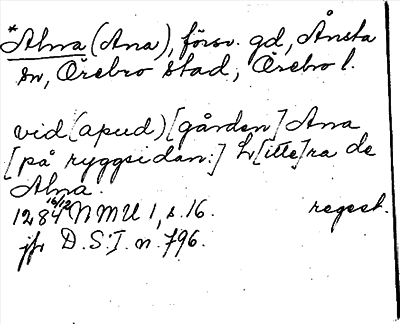 *Alna (Ana), försv. gd, Ånsta
sn, Örebro stad, Örebro l.
vid (apud) [gården] Ana
[på ryggsidan:] L[itte]ra de
Alna.
1284 16/12 NMU 1, s. 16. regest.
jfr D.S. I. n. 796.